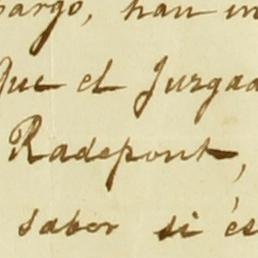 bargo, han in
Que el Juzgad
Radepont,
sabor si és